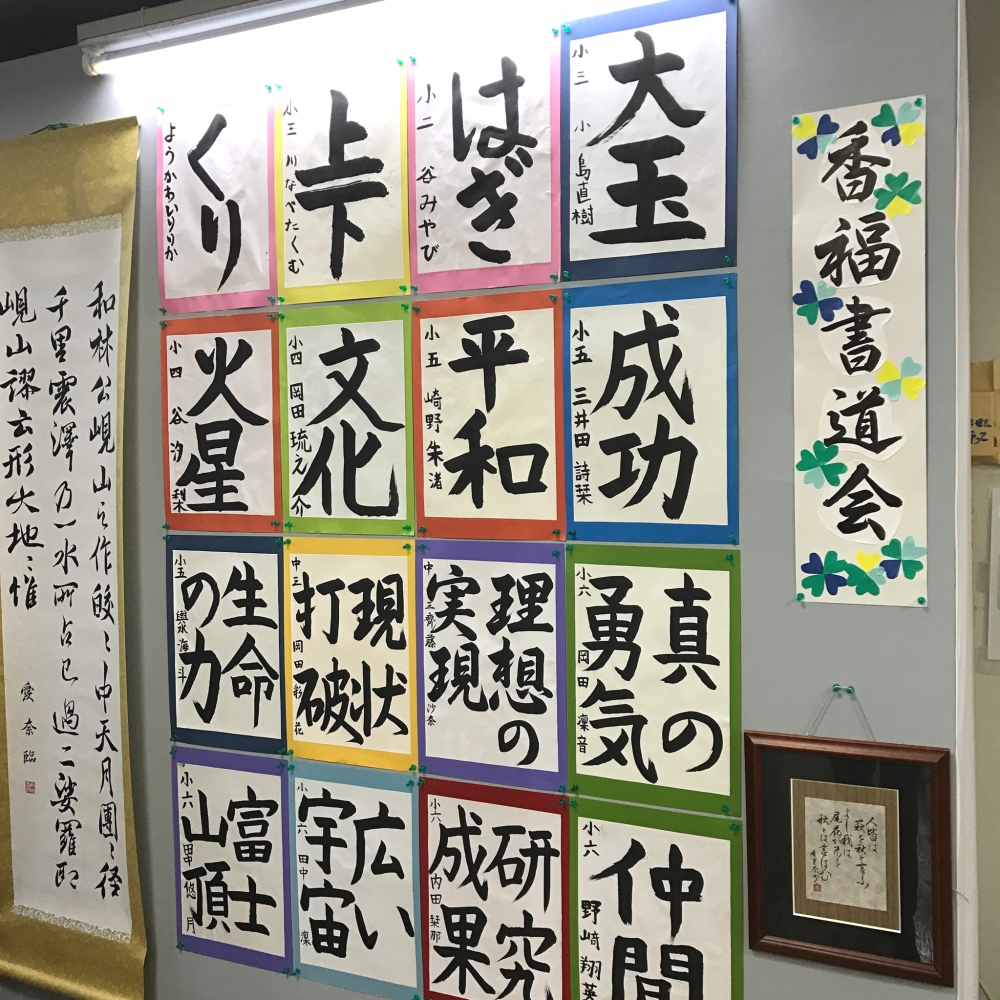 香福書道会
大玉
小三 小島直樹
はぎ
小二 谷みやび
上下
小三 川なべたくむ
くり
ようかわいりりか
成功
小五 三井田詩栞
平和
小五 崎野朱渚
文化
小四 岡田琉之介
火星
小四 谷汐梨
真の
勇気
小六 岡田凜音
理想の
実現
中三 齊藤沙奈
現状
打破
中三 岡田彩花
生命
の力
小五 海斗
仲間
小六 野崎翔英
研究
成果
小六 内田栞那
広い
宇宙
小六 田中凜
富士
山頂
小六 悠月
和林公峴山之作皎〻中天月團〻径
千里震澤乃一水所占已過二娑羅耶
峴山謬云形大地〻惟
愛奈臨
人皆は
萩を秋と言ふ
よし我は
尾花が末を
秋とは言はむ